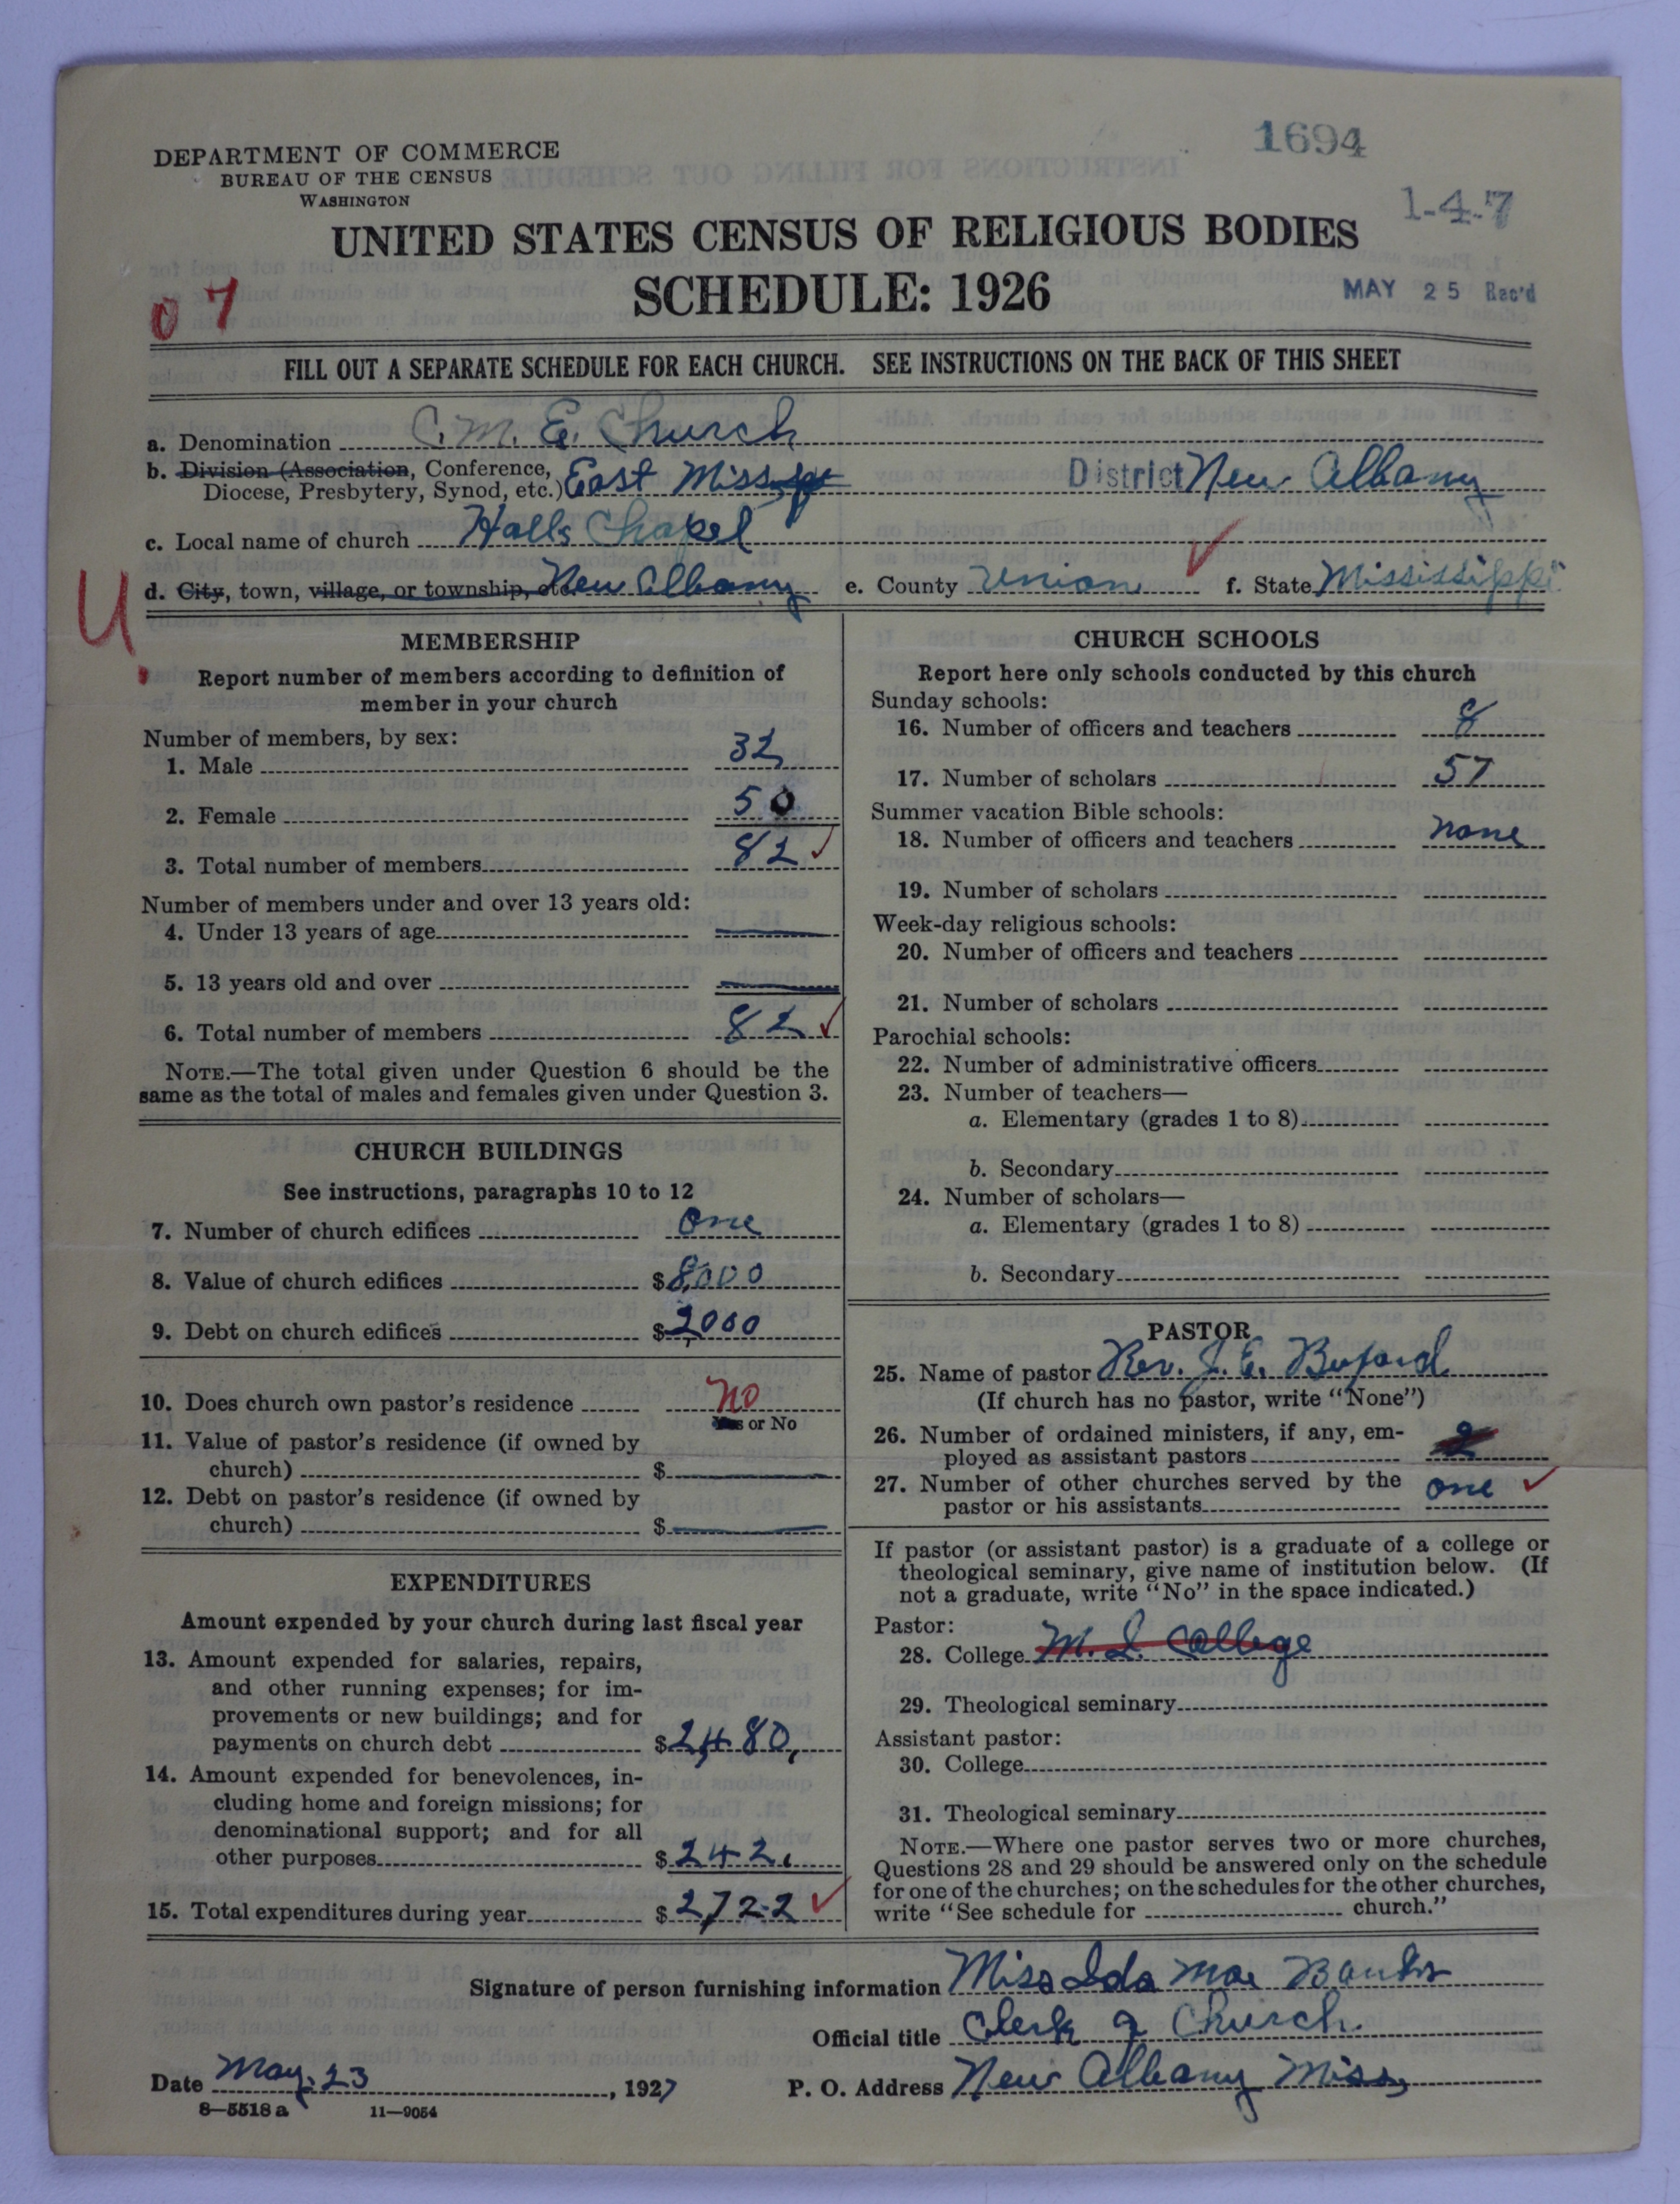 1694
DEPARTMENT OF COMMERCE
BUREAU OF THE CENSUS
WASHINGTON
1-4-7
UNITED STATES CENSUS OF RELIGIOUS BODIES
SCHEDULE: 1926
MAY 25 Rec'd
07
FILL OUT A SEPARATE SCHEDULE FOR EACH CHURCH. SEE INSTRUCTIONS ON THE BACK OF THIS SHEET
a. Denomination C. M. E. Church
b. Division (Association, Conference, Diocese, Presbytery, Synod, etc.) East Miss District New Albany
c. Local name of church Halls Chapel
U.
d. City, town, village, or township, etc. New Albany e. County Union f. State Mississippi
MEMBERSHIP
Report number of members according to definition of
member in your church
Number of members, by sex:
1. Male 32
2. Female 50
3. Total number of members 82
Number of members under and over 13 years old:
4. Under 13 years of age
5. 13 years old and over
6. Total number of members 82
NOTE.—The total given under Question 6 should be the
same as the total of males and females given under Question 3.
CHURCH BUILDINGS
See instructions, paragraphs 10 to 12
7. Number of church edifices one
8. Value of church edifices $8,000
9. Debt on church edifices $2,000
10. Does church own pastor's residence No
Yes or No
11. Value of pastor's residence (if owned by
church) $
12. Debt on pastor's residence (if owned by
church) $
EXPENDITURES
Amount expended by your church during last fiscal year
13. Amount expended for salaries, repairs,
and other running expenses; for im-
provements or new buildings; and for
payments on church debt $2,480,
14. Amount expended for benevolences, in-
cluding home and foreign missions; for
denominational support; and for all
other purposes $242.
15. Total expenditures during year $2,722
CHURCH SCHOOLS
Report here only schools conducted by this church
Sunday schools:
16. Number of officers and teachers 8
17. Number of scholars 57
Summer vacation Bible schools:
18. Number of officers and teachers none
19. Number of scholars
Week-day religious schools:
20. Number of officers and teachers
21. Number of scholars
Parochial schools:
22. Number of administrative officers
23. Number of teachers—
a. Elementary (grades 1 to 8)
b. Secondary
24. Number of scholars—
a. Elementary (grades 1 to 8)
b. Secondary
PASTOR
25. Name of pastor Rev. J. E. Buford
(If church has no pastor, write "None")
26. Number of ordained ministers, if any, em-
ployed as assistant pastors 2
27. Number of other churches served by the
pastor or his assistants one
If pastor (or assistant pastor) is a graduate of a college or
theological seminary, give name of institution below. (If
not a graduate, write "No" in the space indicated.)
Pastor:
28. College M. I. College
29. Theological seminary
Assistant pastor:
30. College
31. Theological seminary
NOTE.—Where one pastor serves two or more churches,
Questions 28 and 29 should be answered only on the schedule
for one of the churches; on the schedules for the other churches,
write "See schedule for church."
Signature of person furnishing information Miss Ida Mae Banks
Official title Clerk of Church.
Date May. 23, 1927 P. O. Address New Albany Miss,
8—5518 a 11—9054